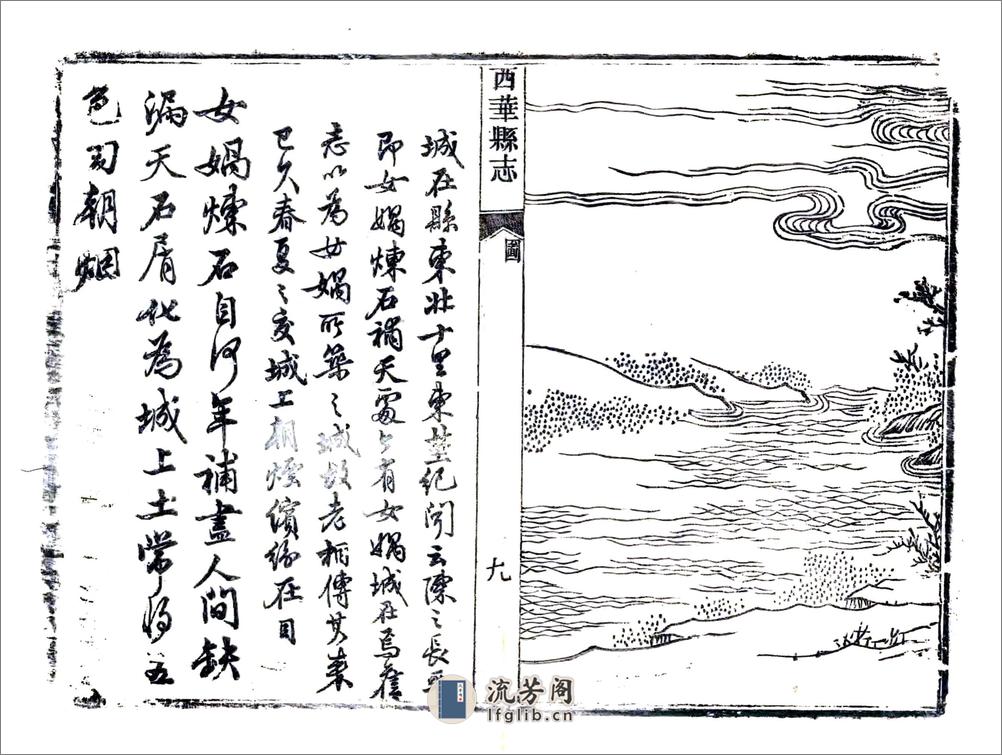 西華縣志
圖
九
城在縣東北十里東埜紀聞云陳之長平
即女媧煉石補天處今有女媧城在焉舊
志以為女媧所築之城故老相傳其來
已久春夏之交城上朝烟繽紛在目
女媧煉石自何年補盡人間缺
漏天石屑化為城上土常將五
色閟朝烟
流芳阁
lfglib.cn